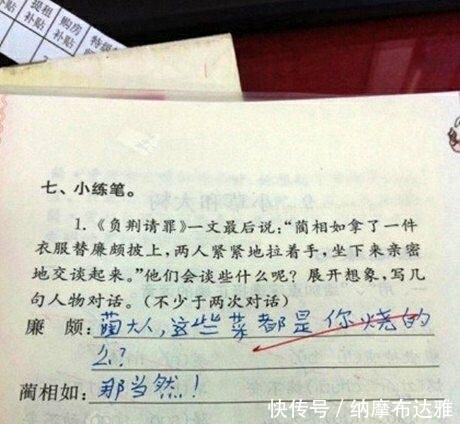 提租补贴
购房补贴
特级
七、小练笔。
1.《负荆请罪》一文最后说:“蔺相如拿了一件
衣服替廉颇披上,两人紧紧地拉着手,坐下来亲密
地交谈起来。”他们会谈些什么呢?展开想象,写几
句人物对话。(不少于两次对话)
廉 颇:蔺大人,这些菜都是你烧的
么?
蔺相如:那当然!
快传号/纳摩布达雅